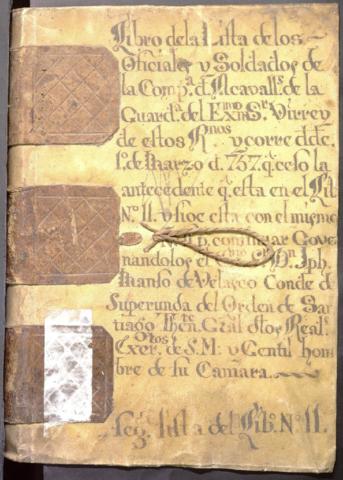 Libro de la Lista de los
Oficiales y Soldados de
la Compª. d. Acavallº. de la
Guardª. del Exmo. Sr. Virrey
de estos Rnos. y corre desde
1º. de Marzo d. 757. q. ceso la
antecedente q. esta en el Lib
Nº. 11. y sige esta con el mismo
continuar Gove
nandolos el Exmo. Sr. Dn. Jph.
Manso de Velasco Conde de
Superunda del Orden de San
tiago Thente. Gral. destos Reals.
Exertos. de S. M. y Gentil hom
bre de su Camara.
Seg. Lista del Libº. Nº. 11.